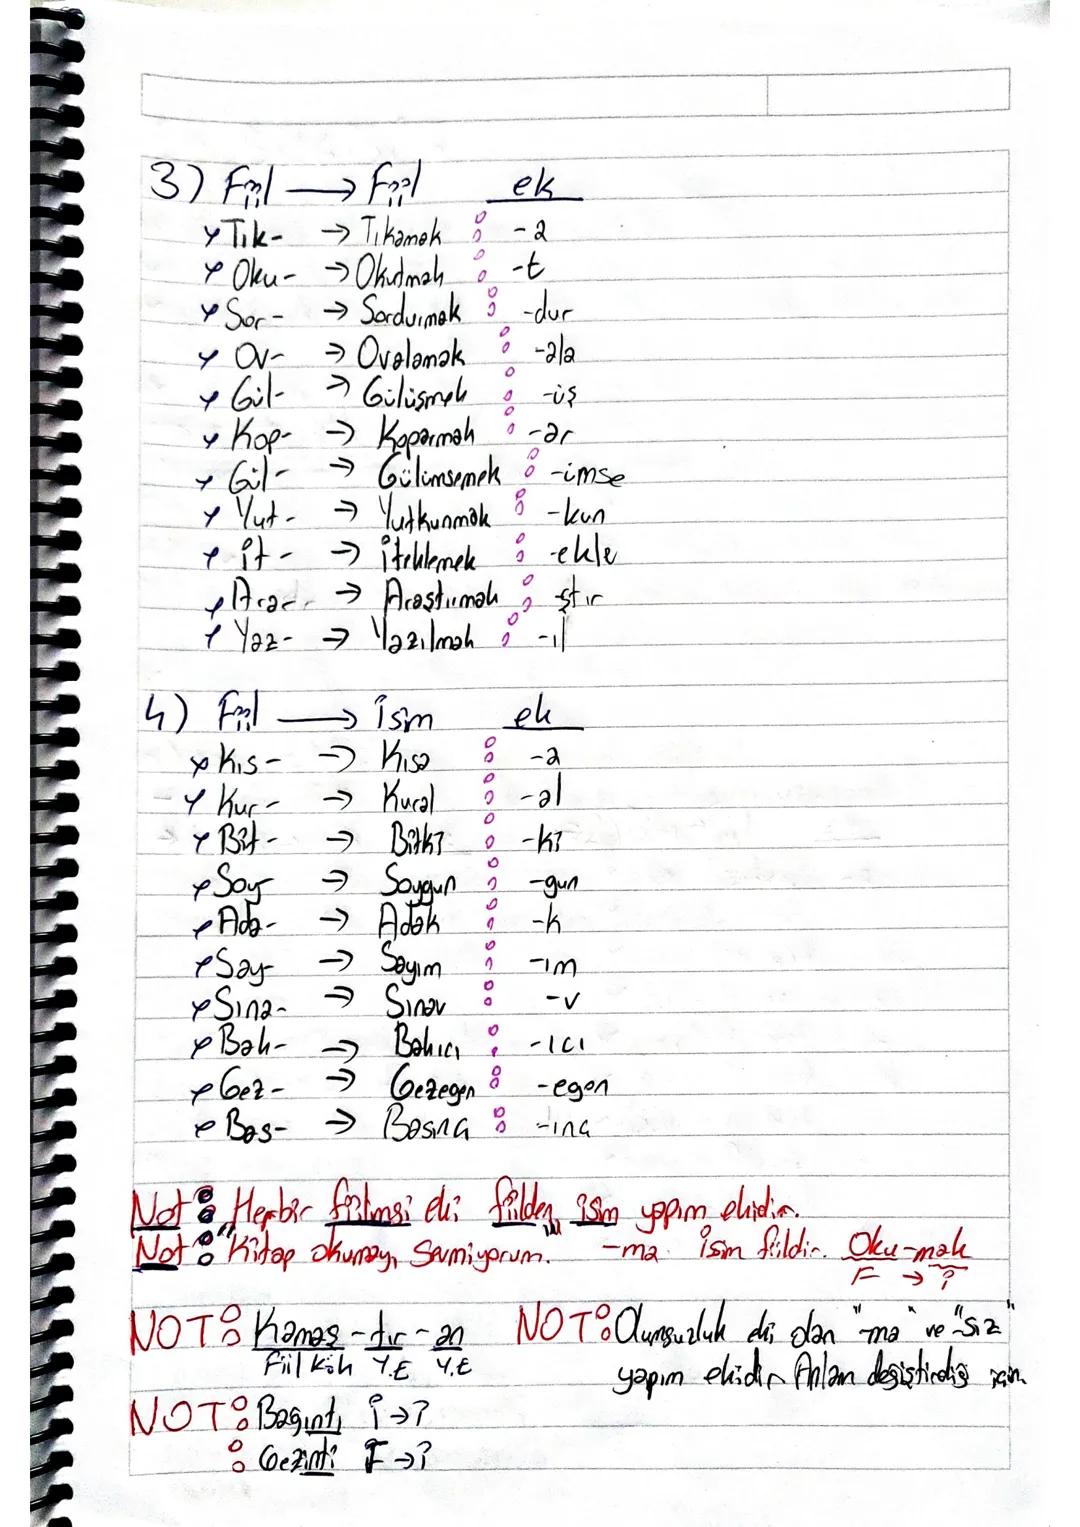 3) Fiil → Fiil ek
Tık- → Tıkamak : -a
Oku- → Okutmak : -t
Sor- → Sordurmak : -dur
Ov- → Ovalamak : -ala
Gül- → Gülüşmek : -üş
Kop- → Koparmak : -ar
Gül- → Gülümsemek : -ümse
Yut- → Yutkunmak : -kun
İt- → İteklemek : -ekle
Ara- → Araştırmak : -ştır
Yaz- → Yazılmak : -ıl
4) Fiil → İsim ek
Kıs- → Kısa : -a
Kur- → Kural : -al
Bit- → Bitki : -ki
Soy- → Soygun : -gun
Ada- → Adak : -k
Say- → Sayım : -ım
Sına- → Sınav : -v
Bak- → Bakıcı : -ıcı
Gez- → Gezegen : -egen
Bas- → Basınç : -ınç
Not: Her bir fiilimsi eki fiilden isim yapım ekidir.
Not: "Kitap okumayı sevmiyorum." -ma isim fiildir. Oku-mak
F → İ
NOT: Kamaş-tır-an NOT: Olumsuzluk eki olan "ma" ve "siz"
Fiil Kök Y.E Y.E yapım ekidir Anlam değiştirdiği için.
NOT: Bağıntı İ→İ
: Gezinti F→İ